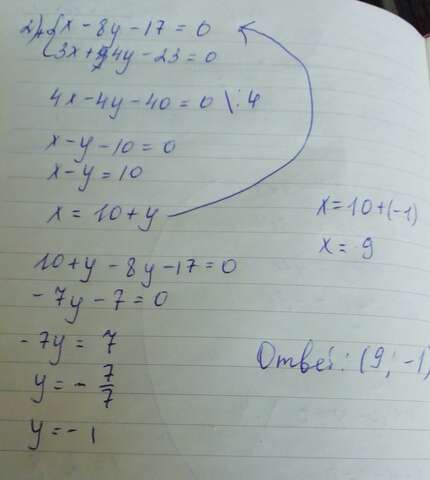 2) { x - 8y - 17 = 0
3x + 4y - 23 = 0
4x - 4y - 40 = 0 \ : 4
x - y - 10 = 0
x - y = 10
x = 10 + y
10 + y - 8y - 17 = 0
- 7y - 7 = 0
- 7y = 7
y = - 7/7
y = - 1
x = 10 + (-1)
x = 9
Ответ: (9; -1)